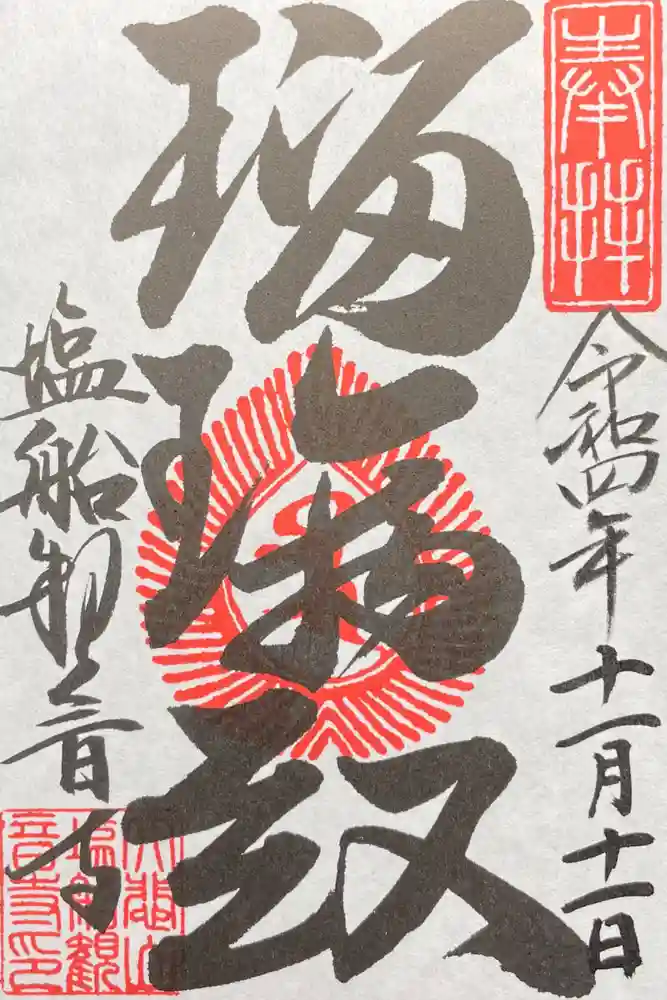 奉拝
令和四年十一月十一日
瑠璃殿
塩船観音寺
大悲山
塩船観
音寺之印